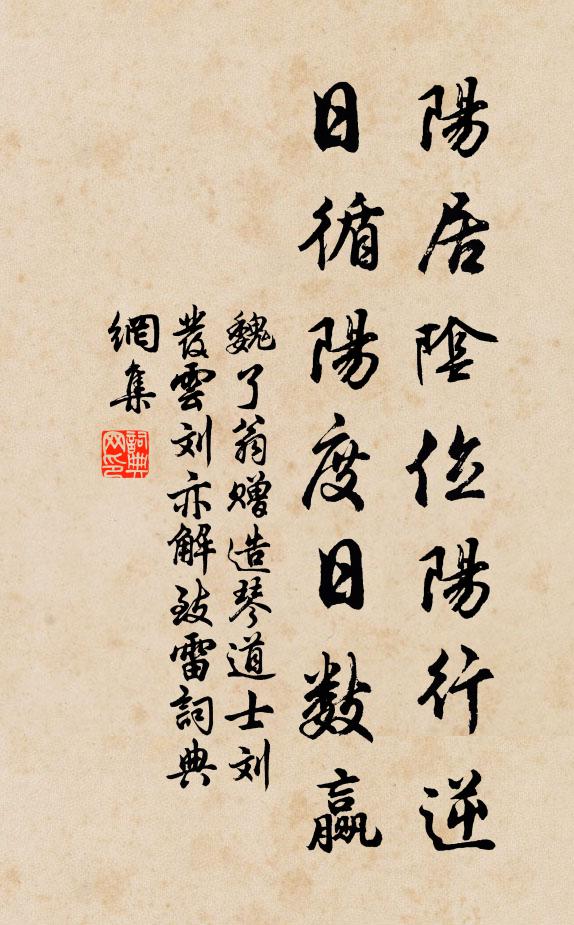 陽居陰位陽行逆
日循陽度日數贏
魏了翁贈造琴道士刘
發雲刘亦解致雷詞典
網集
詞典網印